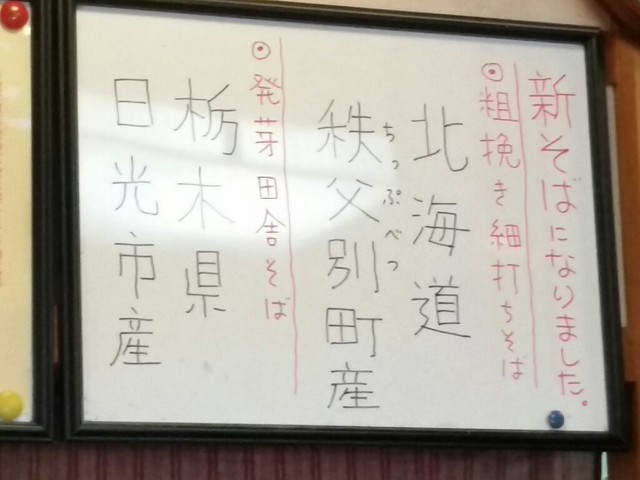 新そばになりました。
◉粗挽き細打ちそば
北海道
ちっぷべつ
秩父別町産
◉発芽田舎そば
栃木県
日光市産